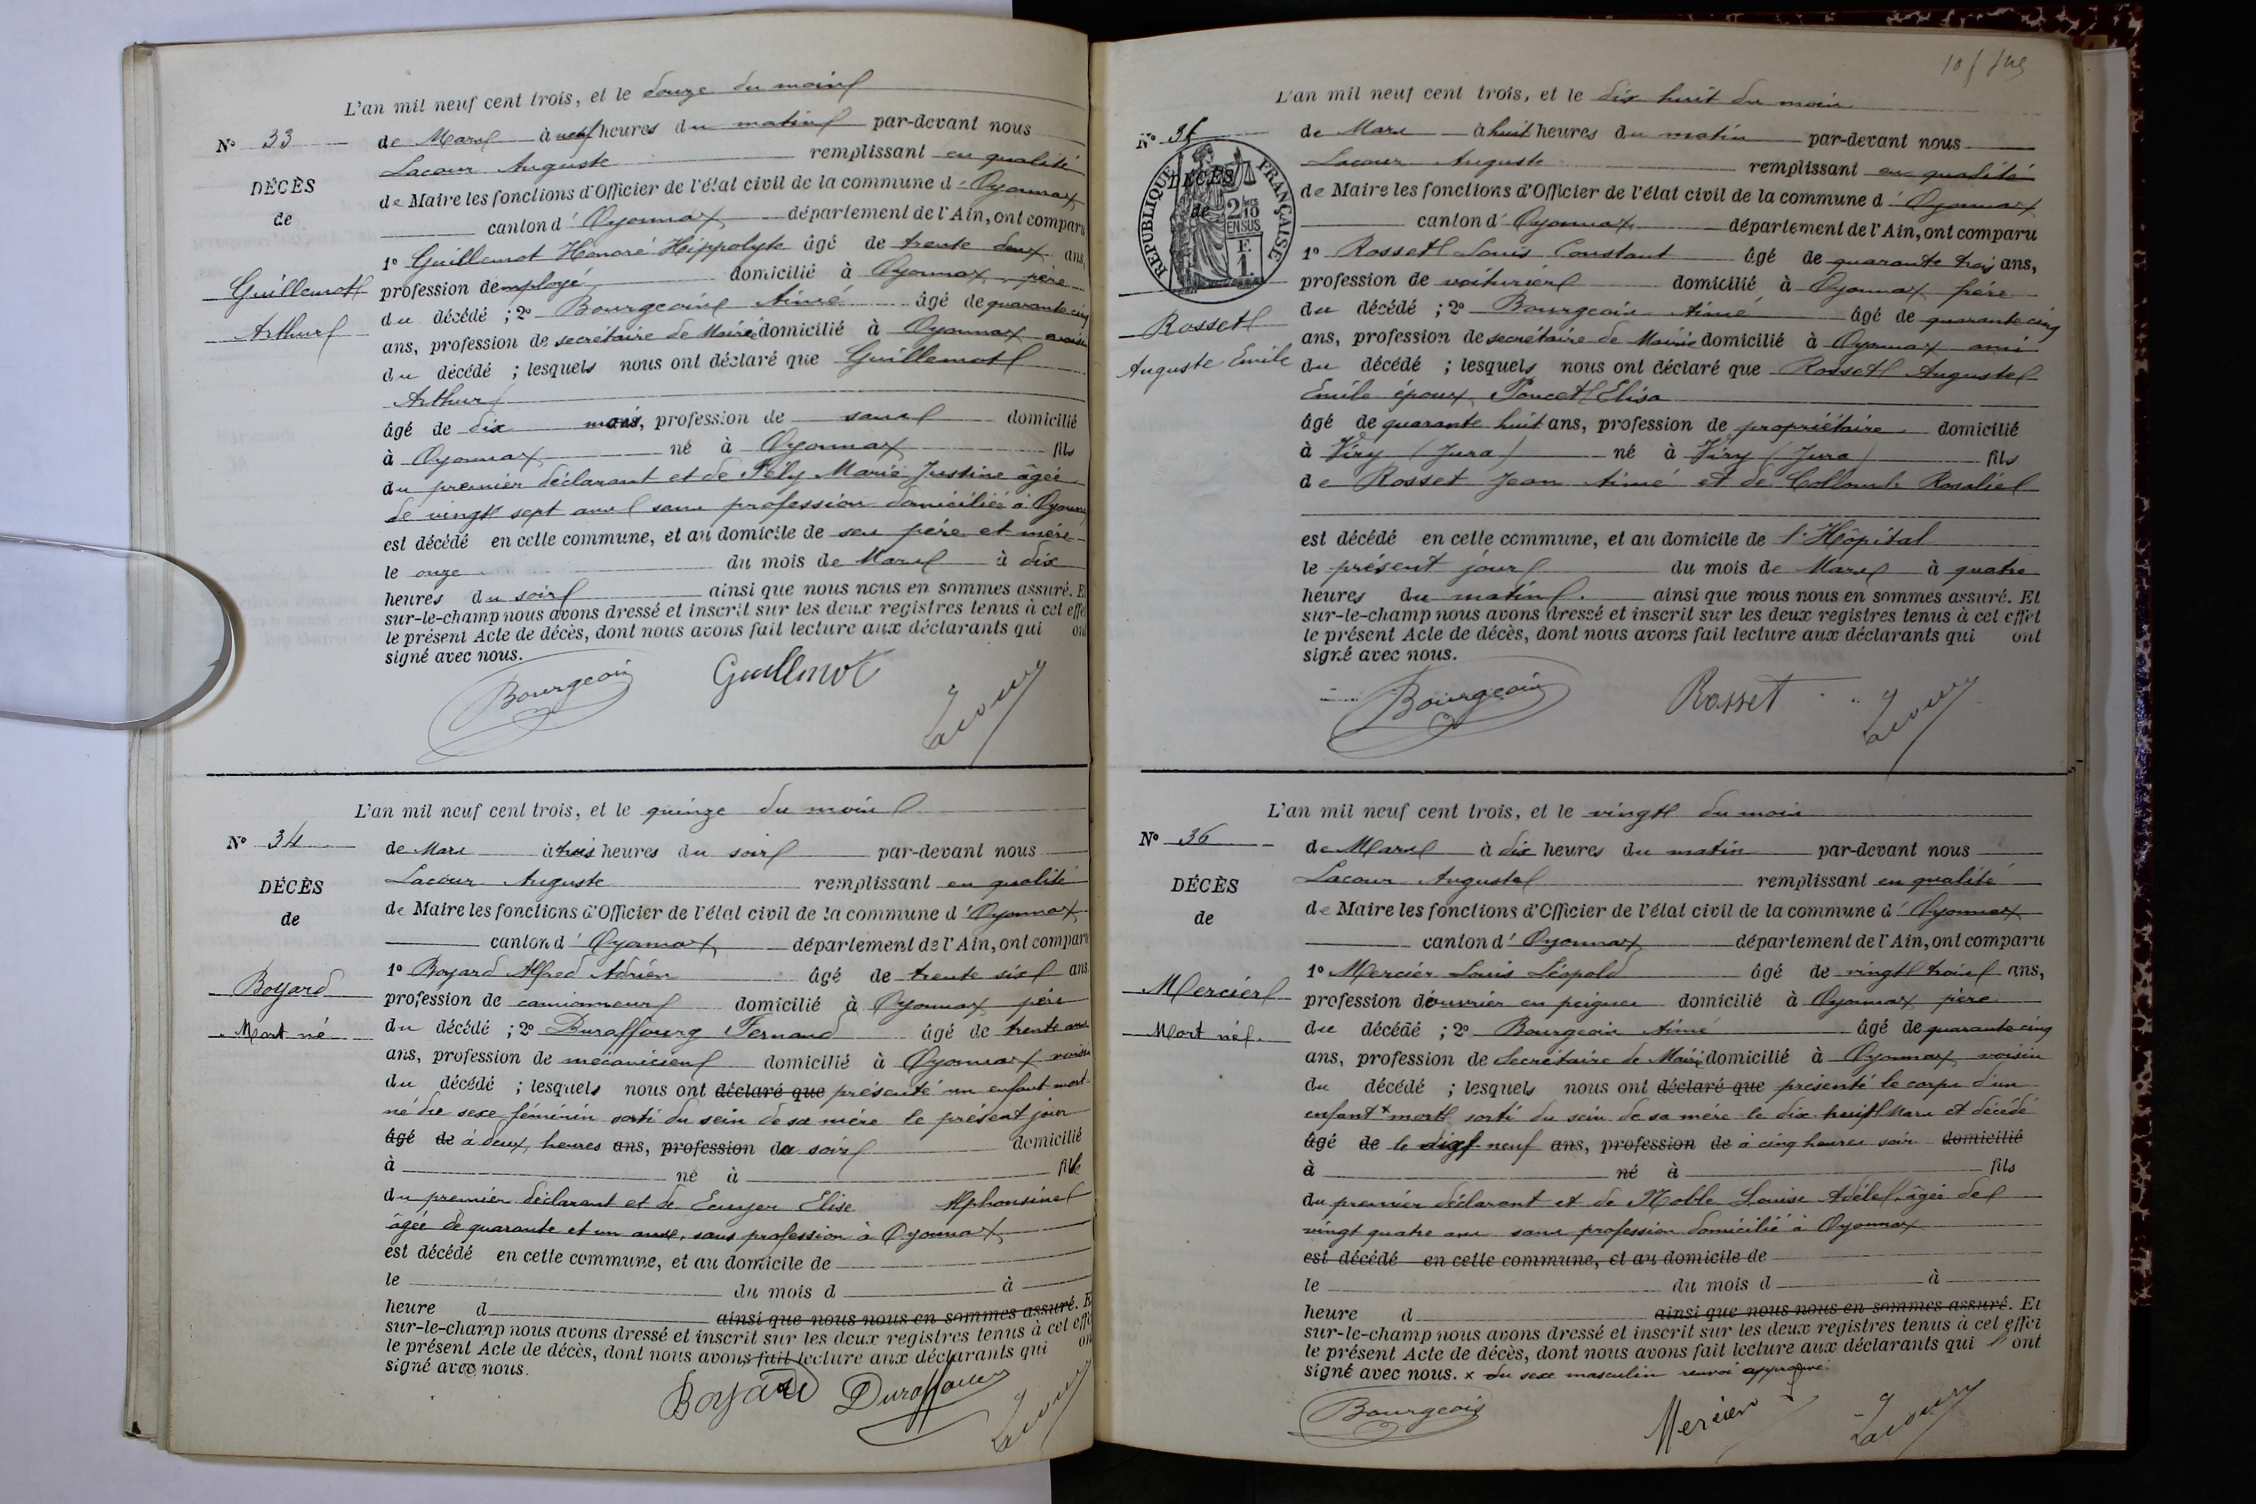 L'an mil neuf cent trois, et le douze du mois
N° 33
de Mars à neuf heures du matin par-devant nous
Lacour Auguste remplissant en qualité
DÉCÈS
de Maire les fonctions d'Officier de l'état civil de la commune d'Oyonnax
de
canton d'Oyonnax département de l'Ain, ont comparu
1° Guillemot Honoré Hippolyte âgé de trente deux ans,
Guillemot
profession d'employé domicilié à Oyonnax père
du décédé ; 2° Bourgeois Aimé âgé de quarante cinq
Arthur
ans, profession de secrétaire de Mairie domicilié à Oyonnax voisin
du décédé ; lesquels nous ont déclaré que Guillemot
Arthur
âgé de dix mois, profession de sans domicilié
à Oyonnax né à Oyonnax fils
du premier déclarant et de Fély Marie Justine âgée
de vingt sept ans sans profession domiciliée à Oyonnax
est décédé en cette commune, et au domicile de ses père et mère
le onze du mois de Mars à dix
heures du soir ainsi que nous nous en sommes assuré. Et
sur-le-champ nous avons dressé et inscrit sur les deux registres tenus à cet effet
le présent Acte de décès, dont nous avons fait lecture aux déclarants qui ont
signé avec nous.
Bourgeois Guillemot Lacour
L'an mil neuf cent trois, et le quinze du mois
N° 34
de Mars à trois heures du soir par-devant nous
Lacour Auguste remplissant en qualité
DÉCÈS
de Maire les fonctions d'Officier de l'état civil de la commune d'Oyonnax
de
canton d'Oyonnax département de l'Ain, ont comparu
1° Boyard Alfred Adrien âgé de trente six ans
Boyard
profession de camionneur domicilié à Oyonnax père
Mort né
du décédé ; 2° Duraffourg Fernand âgé de trente ans
ans, profession de mécanicien domicilié à Oyonnax voisin
du décédé ; lesquels nous ont déclaré que présenté un enfant mort-
né du sexe féminin sorti du sein de sa mère le présent jour
âgé de à deux heures ans, profession du soir domicilié
à né à fille
du premier déclarant et de Ecuyer Elise Alphonsine
âgée de quarante et un ans, sans profession à Oyonnax
est décédé en cette commune, et au domicile de
le du mois d à
heure d ainsi que nous nous en sommes assuré. Et
sur-le-champ nous avons dressé et inscrit sur les deux registres tenus à cet effet
le présent Acte de décès, dont nous avons fait lecture aux déclarants qui ont
signé avec nous.
Boyard Duraffourg Lacour
L'an mil neuf cent trois, et le dix huit du mois
N° 35
de Mars à huit heures du matin par-devant nous
Lacour Auguste remplissant en qualité
DÉCÈS
de Maire les fonctions d'Officier de l'état civil de la commune d'Oyonnax
de
RÉPUBLIQUE FRANÇAISE
2 10
EN SUS
F.
1.
canton d'Oyonnax département de l'Ain, ont comparu
1° Rosset Louis Constant âgé de quarante trois ans,
profession de voiturier domicilié à Oyonnax frère
Rosset
du décédé ; 2° Bourgeois Aimé âgé de quarante cinq
ans, profession de secrétaire de Mairie domicilié à Oyonnax ami
Auguste Emile
du décédé ; lesquels nous ont déclaré que Rosset Auguste
Emile époux Poncet Elisa
âgé de quarante huit ans, profession de propriétaire domicilié
à Viry (Jura) né à Viry (Jura) fils
de Rosset Jean Aimé et de Collomb Rosalie
est décédé en cette commune, et au domicile de l'Hôpital
le présent jour du mois de Mars à quatre
heures du matin. ainsi que nous nous en sommes assuré. Et
sur-le-champ nous avons dressé et inscrit sur les deux registres tenus à cet effet
le présent Acte de décès, dont nous avons fait lecture aux déclarants qui ont
signé avec nous.
Bourgeois Rosset Lacour
L'an mil neuf cent trois, et le vingt du mois
N° 36
de Mars à dix heures du matin par-devant nous
Lacour Auguste remplissant en qualité
DÉCÈS
de Maire les fonctions d'Officier de l'état civil de la commune d'Oyonnax
de
canton d'Oyonnax département de l'Ain, ont comparu
1° Mercier Louis Léopold âgé de vingt trois ans,
Mercier
profession d'ouvrier en peignes domicilié à Oyonnax père
Mort né.
du décédé ; 2° Bourgeois Aimé âgé de quarante cinq
ans, profession de Secrétaire de Mairie domicilié à Oyonnax voisin
du décédé ; lesquels nous ont déclaré que présenté le corps d'un
enfant x mort sorti du sein de sa mère le dix huit Mars et décédé
âgé de le dix neuf ans, profession de à cinq heures soir domicilié
à né à fils
du premier déclarant et de Moble Louise Adèle âgée de
vingt quatre ans sans profession domicilié à Oyonnax
est décédé en cette commune, et au domicile de
le du mois d à
heure d ainsi que nous nous en sommes assuré. Et
sur-le-champ nous avons dressé et inscrit sur les deux registres tenus à cet effet
le présent Acte de décès, dont nous avons fait lecture aux déclarants qui ont
signé avec nous. x du sexe masculin renvoi approuvé.
Bourgeois Mercier Lacour